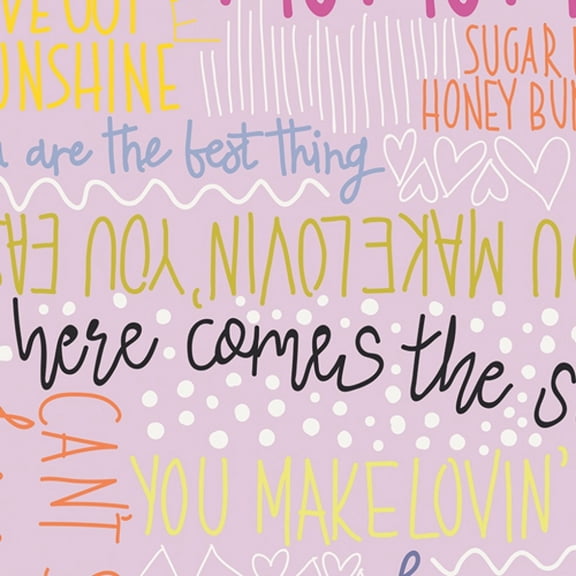 SUNSHINE
SUGAR
HONEY BUN
are the best thing
YOU MAKE LOVIN' YOU EAS
here comes the s
CAN'T
YOU MAKE LOVIN'